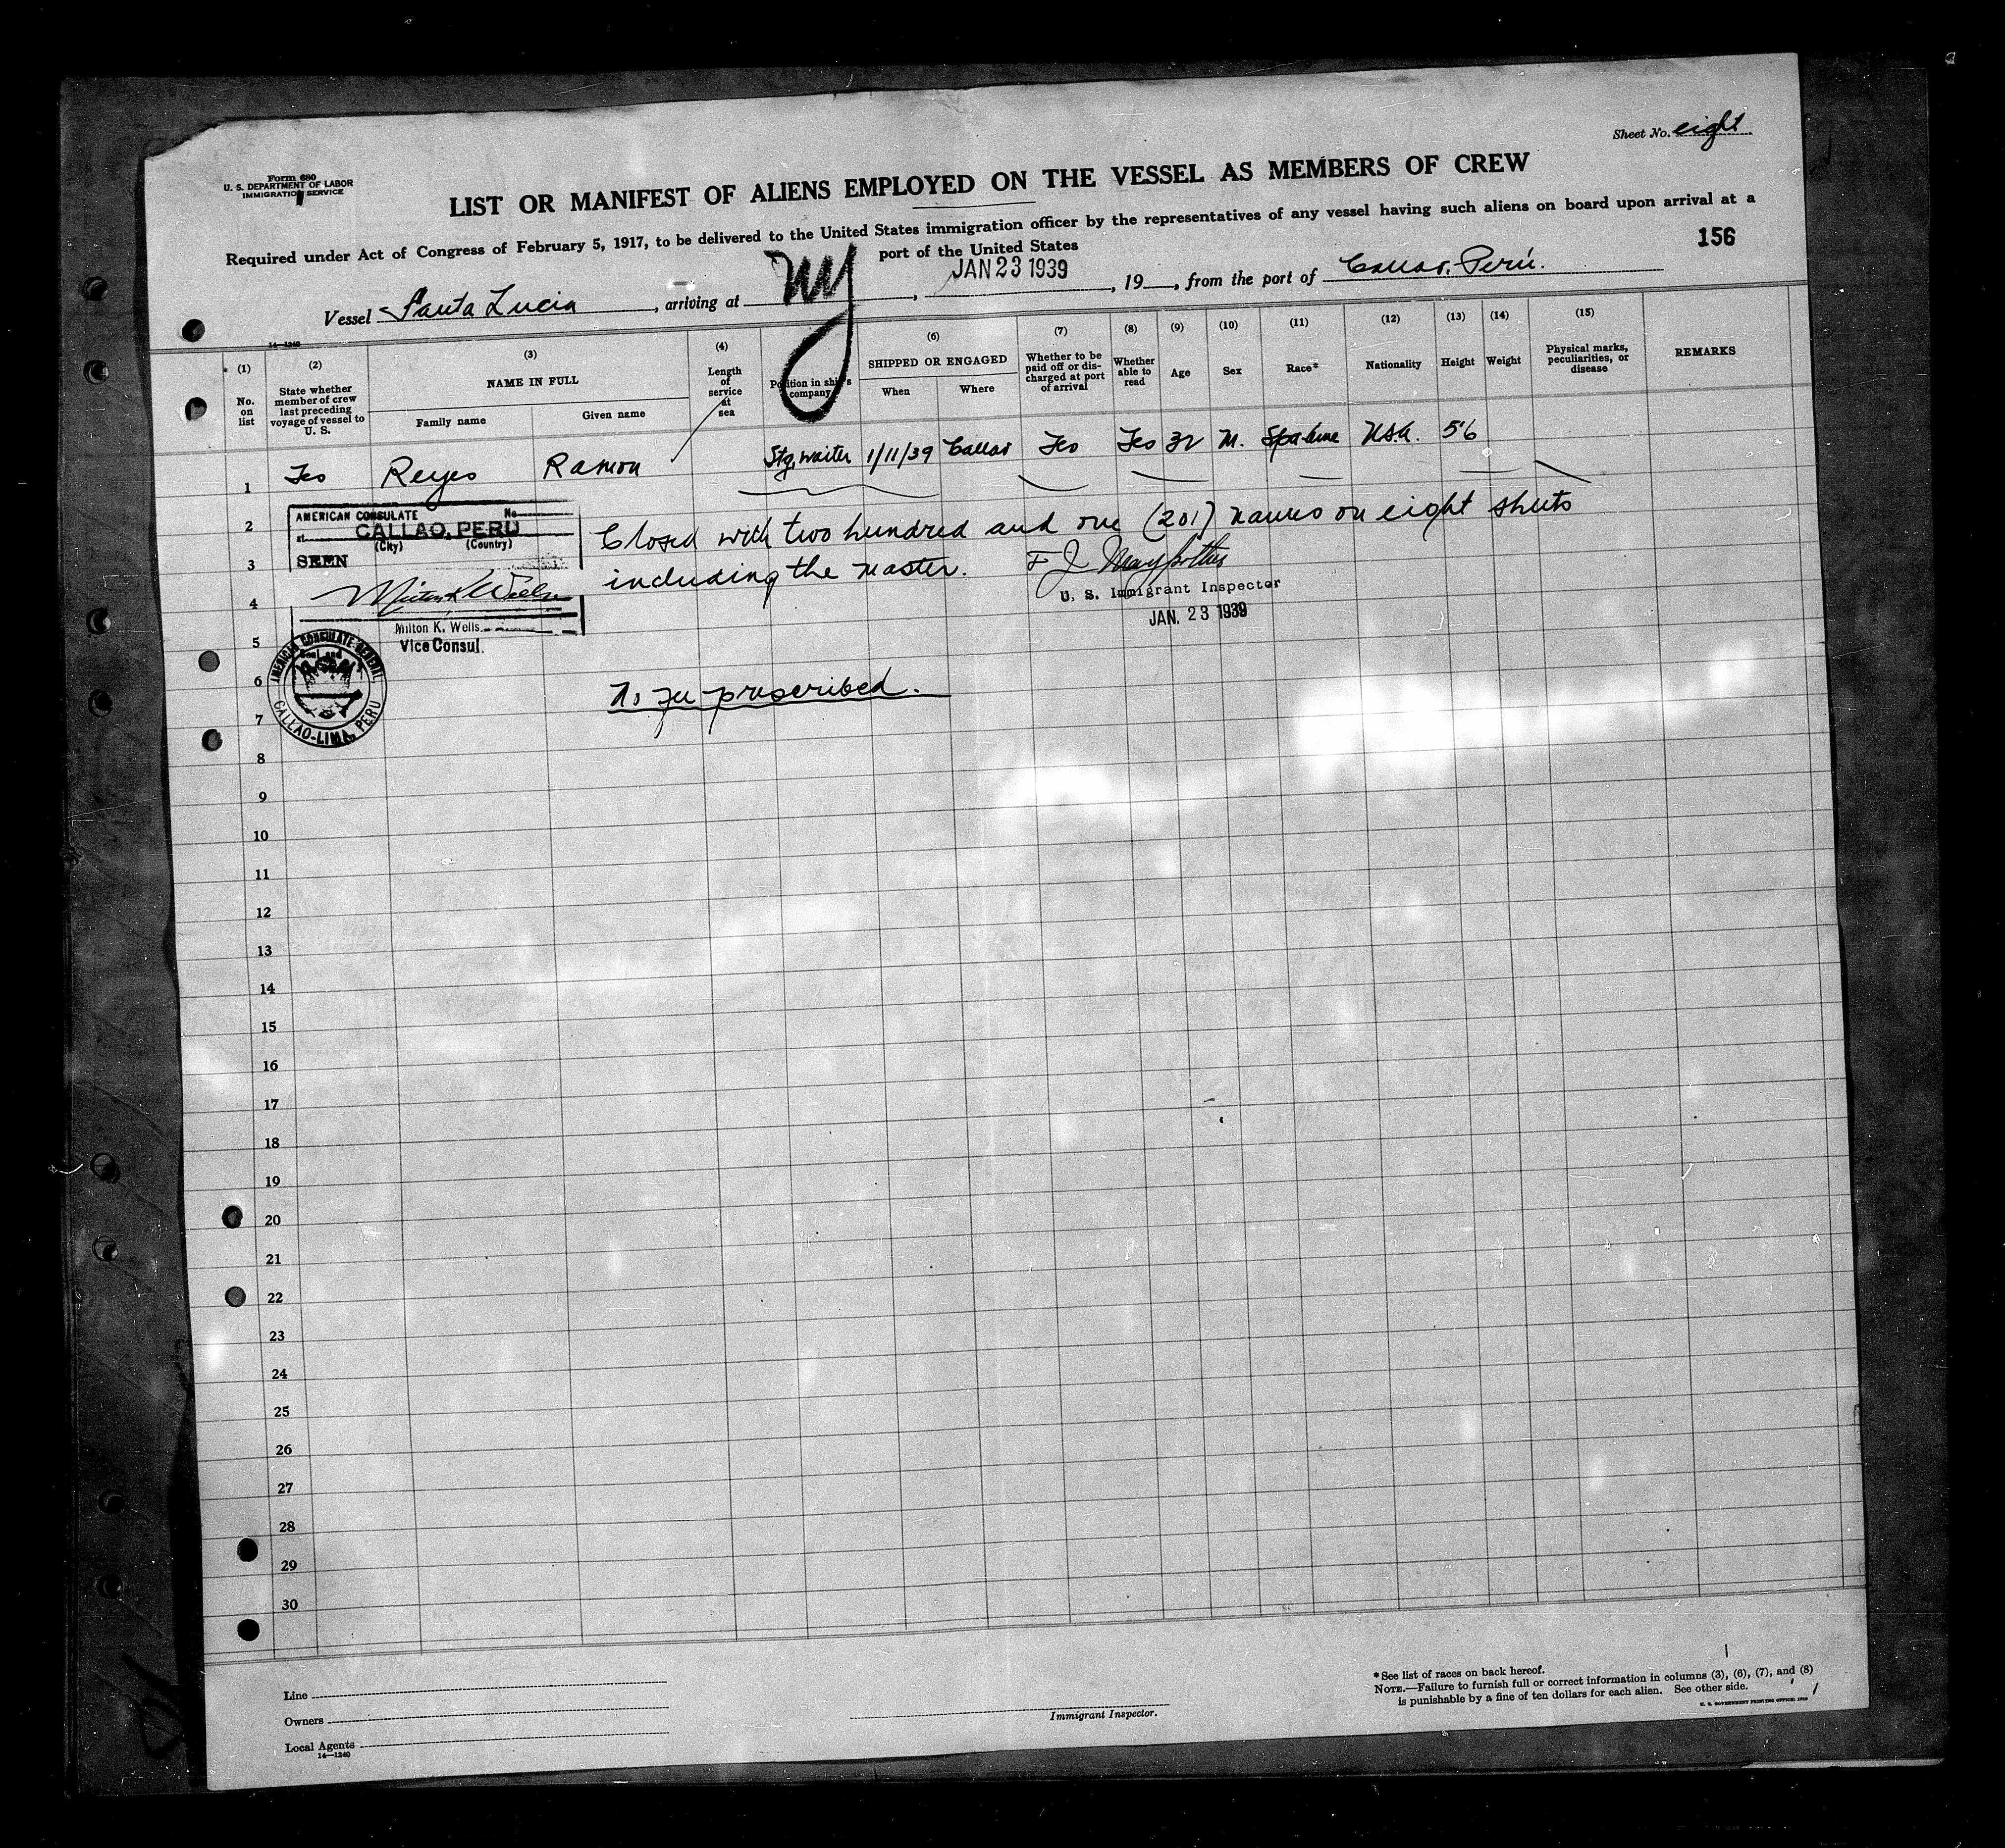 Sheet No. eight
Form 680
U. S. DEPARTMENT OF LABOR
IMMIGRATION SERVICE
LIST OR MANIFEST OF ALIENS EMPLOYED ON THE VESSEL AS MEMBERS OF CREW
Required under Act of Congress of February 5, 1917, to be delivered to the United States immigration officer by the representatives of any vessel having such aliens on board upon arrival at a
port of the United States
156
Vessel Santa Lucia, arriving at NY, JAN 23 1939, 19, from the port of Callao, Perú.
14—1240
(1) No. on list
(2) State whether member of crew last preceding voyage of vessel to U. S.
(3) NAME IN FULL
Family name
Given name
(4) Length of service at sea
Position in ship's company
(6) SHIPPED OR ENGAGED
When
Where
(7) Whether to be paid off or discharged at port of arrival
(8) Whether able to read
(9) Age
(10) Sex
(11) Race*
(12) Nationality
(13) Height
(14) Weight
(15) Physical marks, peculiarities, or disease
REMARKS
1 Yes Reyes Ramon Stg. waiter 1/11/39 Callao Yes Yes 32 M. U.S.A. 5'6
2
3
4
5
6
7
8
9
10
11
12
13
14
15
16
17
18
19
20
21
22
23
24
25
26
27
28
29
30
AMERICAN CONSULATE No.
at CALLAO, PERU
(City) (Country)
SEEN
Milton K. Wells
Milton K. Wells
Vice Consul.
AMERICAN CONSULATE GENERAL
CALLAO-LIMA, PERU
Closed with two hundred and one (201) names on eight sheets
including the master.
F J
U. S. Immigrant Inspector
JAN. 23 1939
No fee prescribed.
Line
Owners
Local Agents
14—1240
Immigrant Inspector.
*See list of races on back hereof.
NOTE.—Failure to furnish full or correct information in columns (3), (6), (7), and (8)
is punishable by a fine of ten dollars for each alien. See other side.
U. S. GOVERNMENT PRINTING OFFICE: